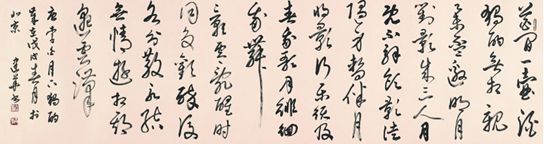 花間一壺酒
獨酌無相親
舉杯邀明月
對影成三人月
既不解飲影徒
隨我身暫伴月
將影行樂須及
春我歌月徘徊
我舞
影零亂醒時
同交歡醉後
各分散永結
無情遊相期
邈雲漢
唐李白月下獨酌
歲在戊戌春月於
北京 建華書